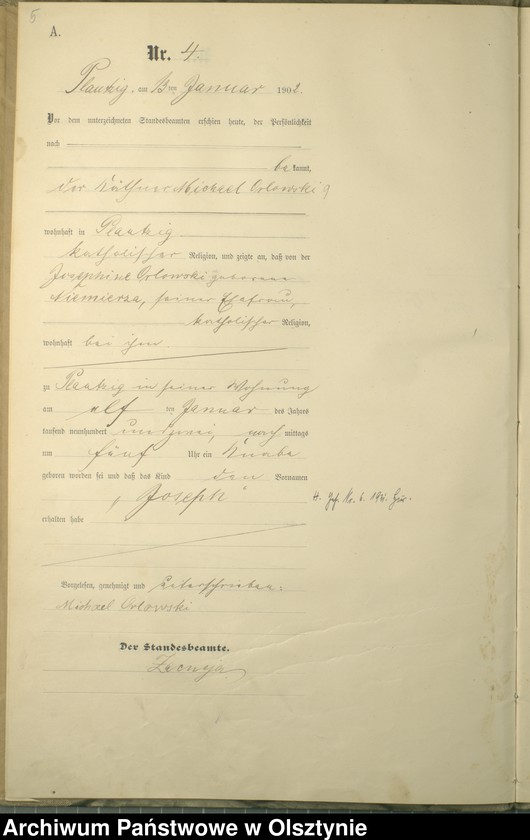 5
A.
Nr. 4.
Plautzig, am 13 ten Januar 1902.
Vor dem unterzeichneten Standesbeamten erschien heute, der Persönlichkeit
nach
bekannt,
der Käthner Michael Orlowski
wohnhaft in Plautzig
katholischer Religion, und zeigte an, daß von der
Josephine Orlowski geborene
Niemierza, seiner Ehefrau,
katholischer Religion,
wohnhaft bei ihm
zu Plautzig in seiner Wohnung
am elf ten Januar des Jahres
tausend neunhundert und zwei, nach mittags
um fünf Uhr ein Knabe
geboren worden sei und daß das Kind den Vornamen
„Joseph“
H. Nr. 6.
erhalten habe
Vorgelesen, genehmigt und unterschrieben:
Michael Orlowski
Der Standesbeamte.
Archiwum Państwowe w Olsztynie